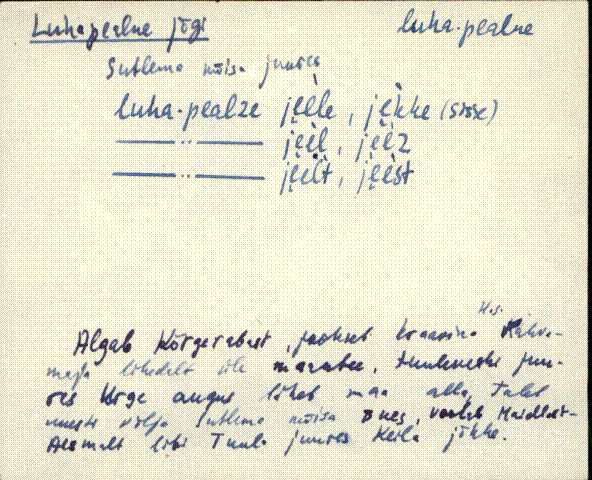 Luhapealne jõgi luha·pealne
Sutlema mõisa juures
luha·pealze jẹèle, jẹ̀kke (sisse)
—— ·· —— jẹèl, jẹèz
—— ·· —— jẹèlt, jẹèst
H.S.
Algab Kõrgerabast, jookseb kraavina Rahva-
maja lähedalt üle maantee, Huulveski juu-
res Urge augus läheb maa alla, tuleb
uuesti välja Sutlema mõisa õues, voolab Maidlast-
Aesmalt läbi Tuula juures Keila jõkke.